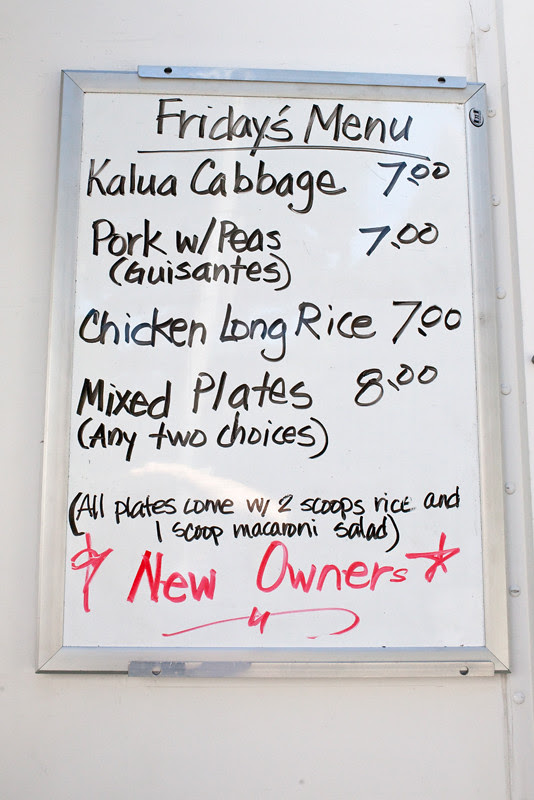 Friday's Menu
Kalua Cabbage 7.00
Pork w/Peas 7.00
(Guisantes)
Chicken Long Rice 7.00
Mixed Plates 8.00
(Any two choices)
(All plates come w/ 2 scoops rice and
1 scoop macaroni salad)
* New Owners *